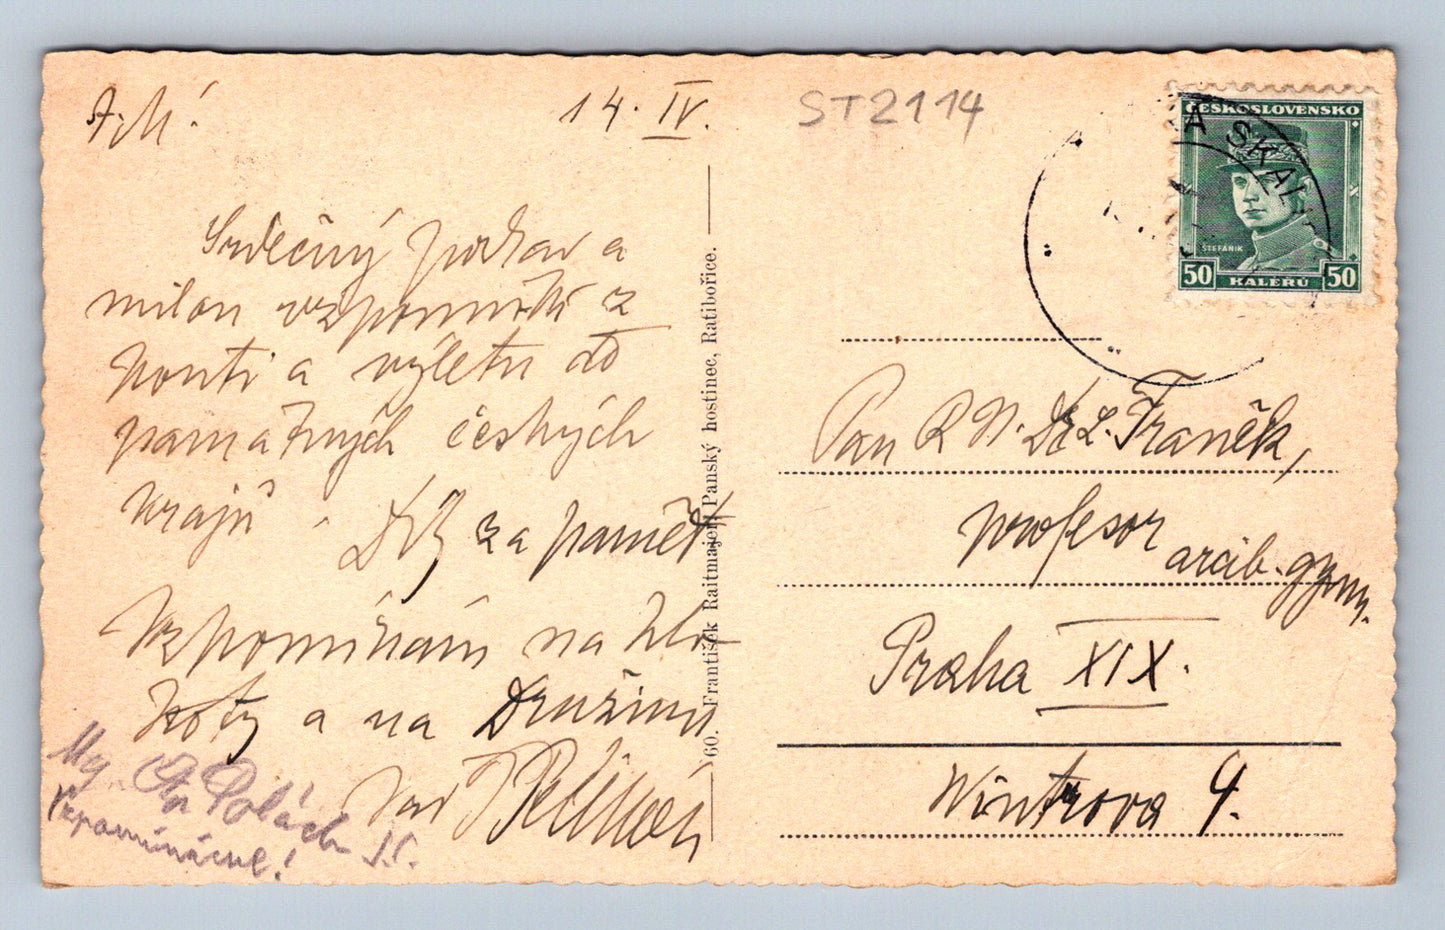 14. IV.
Srdečný pozdrav a
milou vzpomínku z
pouti a výletu do
památných českých
krajů
Dík za paměť
Vzpomínám na Zlo
a na Družinu
Vzpomínáme!
60. František Raitmajer, Panský hostinec, Ratibořice.
ST2114
ČESKOSLOVENSKO
ŠTEFÁNIK
50 HALERŮ 50
SKALI
Pan R N. Dr L. Franěk,
profesor arcib. gymn.
Praha XIX.
Wintrova 4.